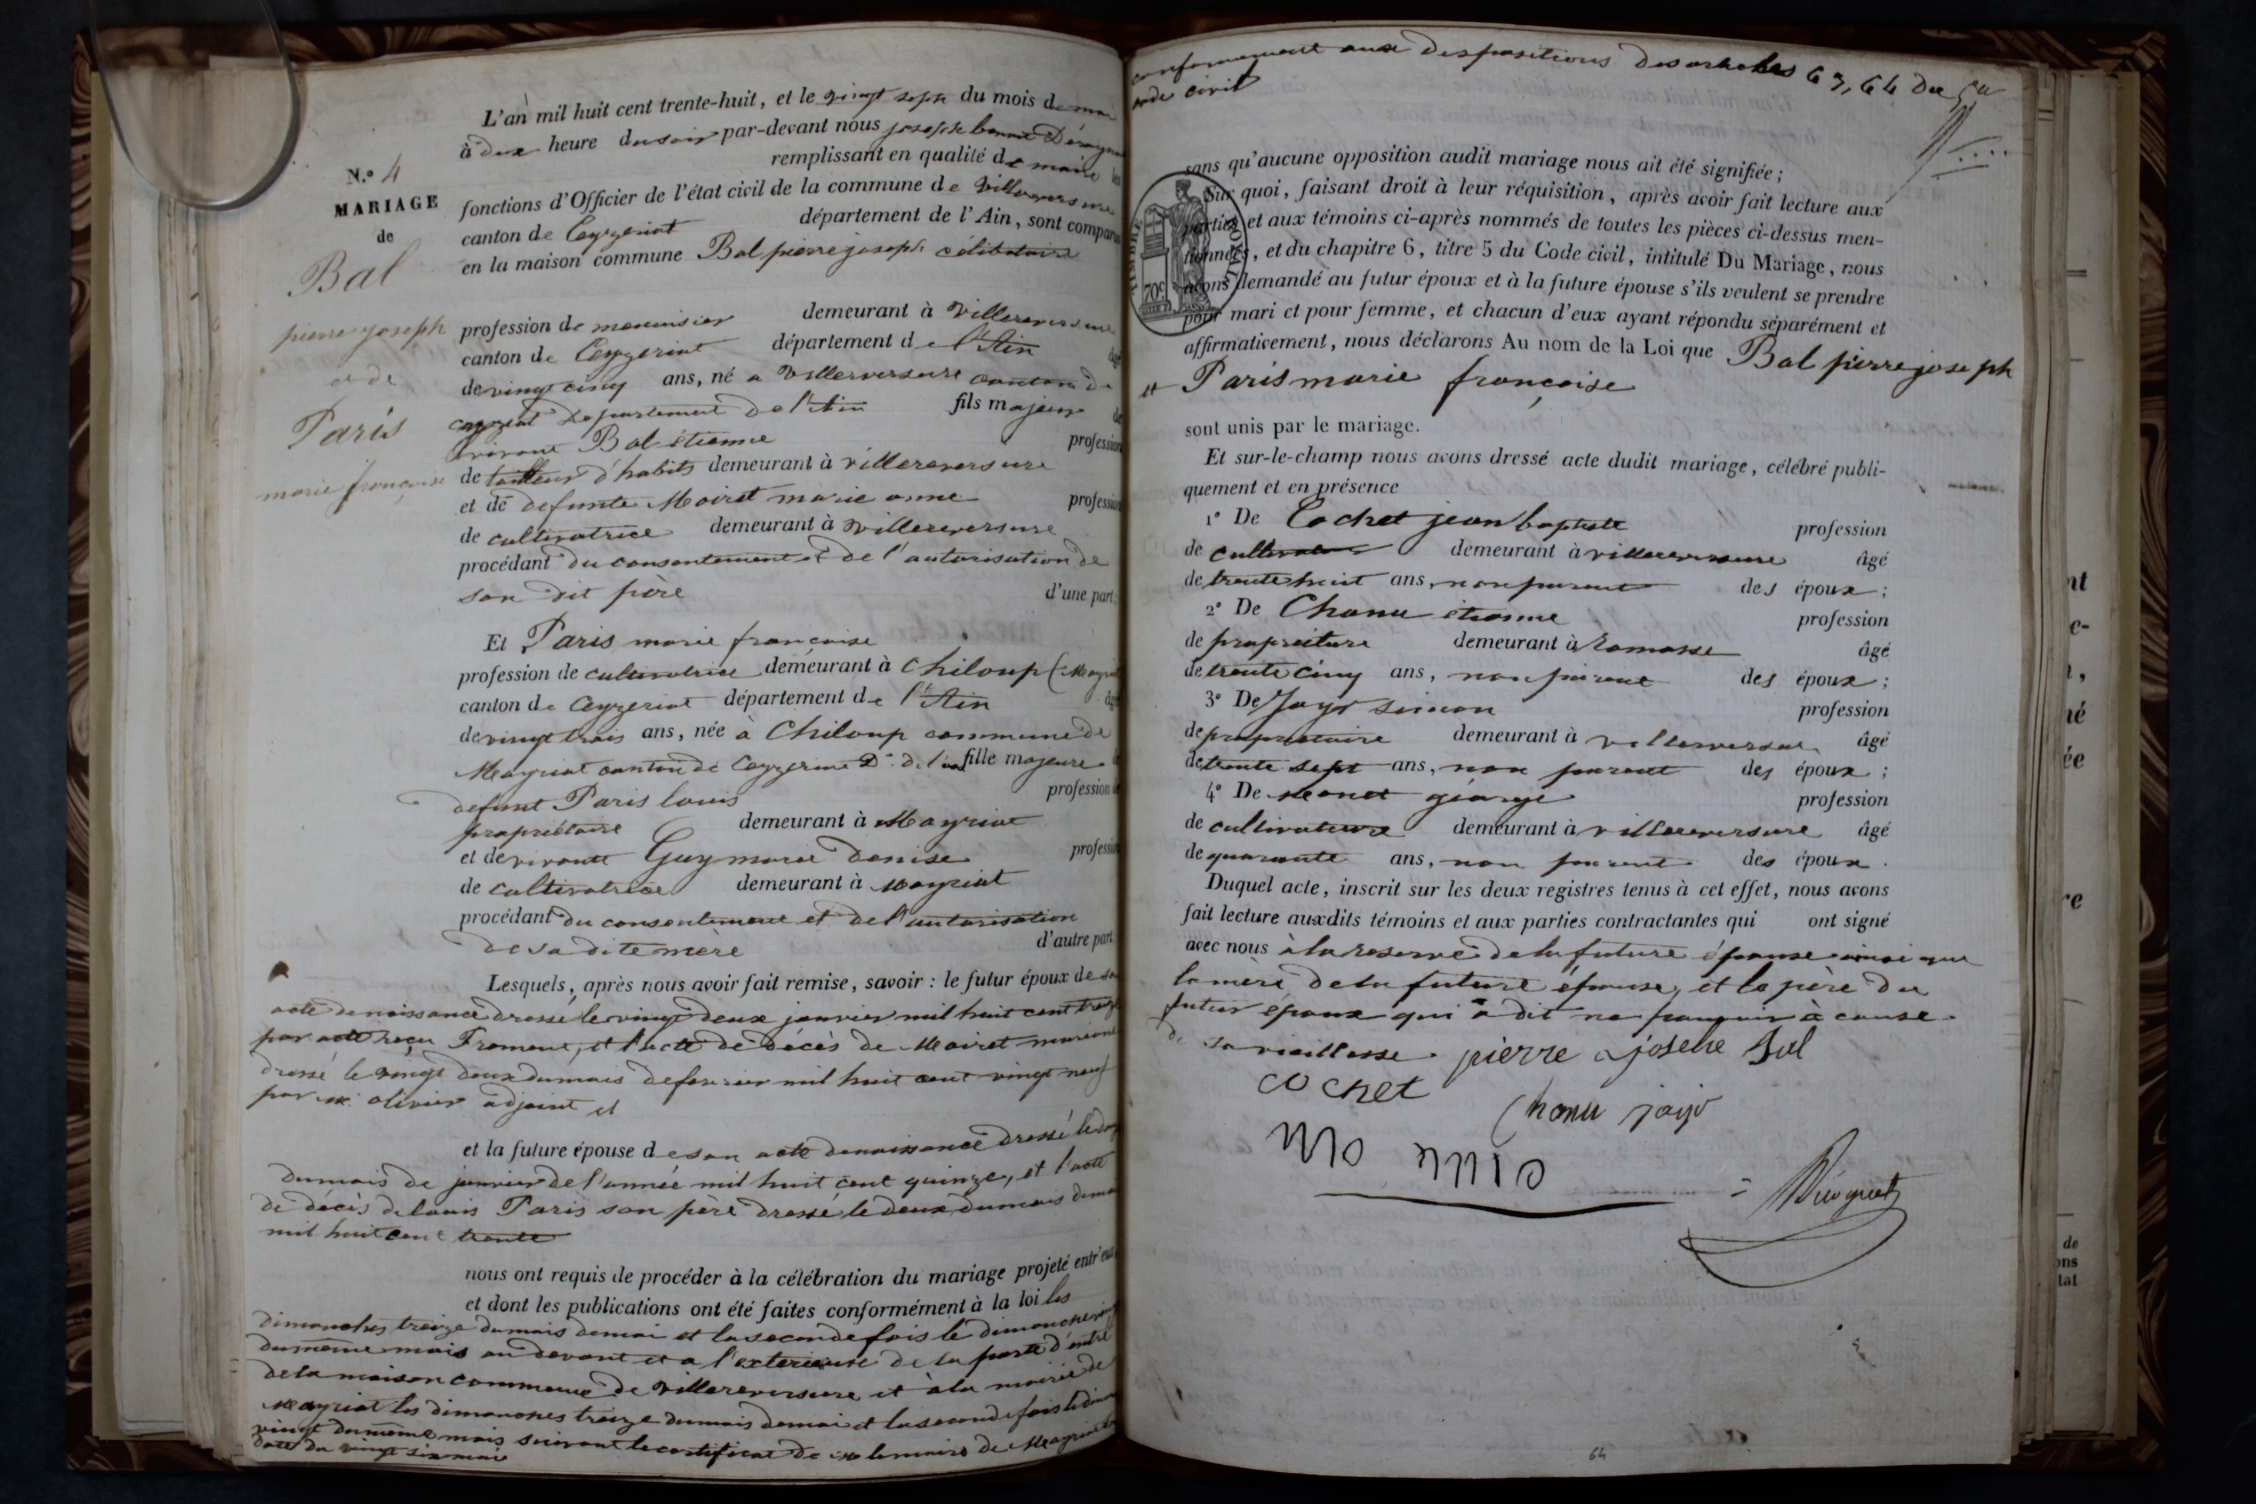 N.º 4
MARIAGE
de
Bal
pierre joseph
et de
Paris
marie françoise
L'an mil huit cent trente-huit, et le vingt sept du mois de mai
à deux heure du soir par-devant nous joseph
remplissant en qualité de maire les
fonctions d'Officier de l'état civil de la commune de Villereversure
canton de Ceyzeriat département de l'Ain, sont comparus
en la maison commune Bal pierre joseph célibataire
profession de menuisier demeurant à Villereversure
canton de Ceyzeriat département de l'Ain âgé
de vingt cinq ans, né a Villereversure canton de
ceyzeriat Departement de l'Ain fils majeur de
vivant Bal étienne profession
de tailleur d'habits demeurant à villereversure
et de defunte Moiret marie anne profession
de cultivatrice demeurant à villereversure
procédant du consentement et de l'autorisation de
son dit père d'une part.
Et Paris marie françoise
profession de cultivatrice demeurant à Chiloup (Meyriat
canton de Ceyzeriat département de l'Ain âgé
de vingt trois ans, née à Chiloup commune de
Meyriat canton de Ceyzeriat D. de l'ain fille majeure d
defunt Paris louis profession de
propriétaire demeurant à Mayriat
et de vivante Guy marie denise profession
de cultivatrice demeurant à Mayriat
procédant du consentement et de l'autorisation
de sa dite mère d'autre part.
Lesquels, après nous avoir fait remise, savoir : le futur époux de son
acte de naissance dressé le vingt deux janvier mil huit cent treize
par acte reçu Froment, et l'acte de décès de Moiret marianne
dressé le vingt deux du mois de fevrier mil huit cent vingt neuf
par m. olivier adjoint et
et la future épouse de son acte de naissance dressé le
du mois de janvier de l'année mil huit cent quinze, et l'acte
de décès de louis Paris son père dressé le deux du mois de mai
mil huit cent trente
nous ont requis de procéder à la célébration du mariage projeté entr'eux
et dont les publications ont été faites conformément à la loi les
dimanches treize du mois de mai et la seconde fois le dimanche vingt
du même mois au devant et a l'exterieure de la porte d'entré
de la maison commune de Villereversure et à la mairie de
Mayriat les dimanches treize du mois de mai et la seconde fois le dimanche
vingt du même mois suivant le certificat de M le maire de Meyriat en
date du vingt six mai
conformement aux despositions des articles 63, 64 du
code civil
sans qu'aucune opposition audit mariage nous ait été signifiée ;
Sur quoi, faisant droit à leur réquisition, après avoir fait lecture aux
parties et aux témoins ci-après nommés de toutes les pièces ci-dessus men-
tionnées, et du chapitre 6, titre 5 du Code civil, intitulé Du Mariage, nous
avons demandé au futur époux et à la future épouse s'ils veulent se prendre
pour mari et pour femme, et chacun d'eux ayant répondu séparément et
affirmativement, nous déclarons Au nom de la Loi que Bal pierre joseph
et Paris marie françoise
sont unis par le mariage.
Et sur-le-champ nous avons dressé acte dudit mariage, célébré publi-
quement et en présence
1º De Cochet jean baptiste profession
de cultivateur demeurant à villereversure âgé
de trente huit ans, non parent des époux ;
2º De Chanu étienne profession
de propriétaire demeurant à Romasse âgé
de trente cinq ans, non parent des époux ;
3º De Jayr simon profession
de propriétaire demeurant à villereversure âgé
de trente sept ans, non parent des époux ;
4º De Monet géorge profession
de cultivateure demeurant à villereversure âgé
de quarante ans, non parent des époux.
Duquel acte, inscrit sur les deux registres tenus à cet effet, nous avons
fait lecture auxdits témoins et aux parties contractantes qui ont signé
avec nous à la reserve de la future épouse ainsi que
la mère de la future épouse, et le père du
futur époux qui a dit ne pouvoir à cause
de sa vieillesse. pierre josehe Bal
cochet
Chanu jayr
70c
64